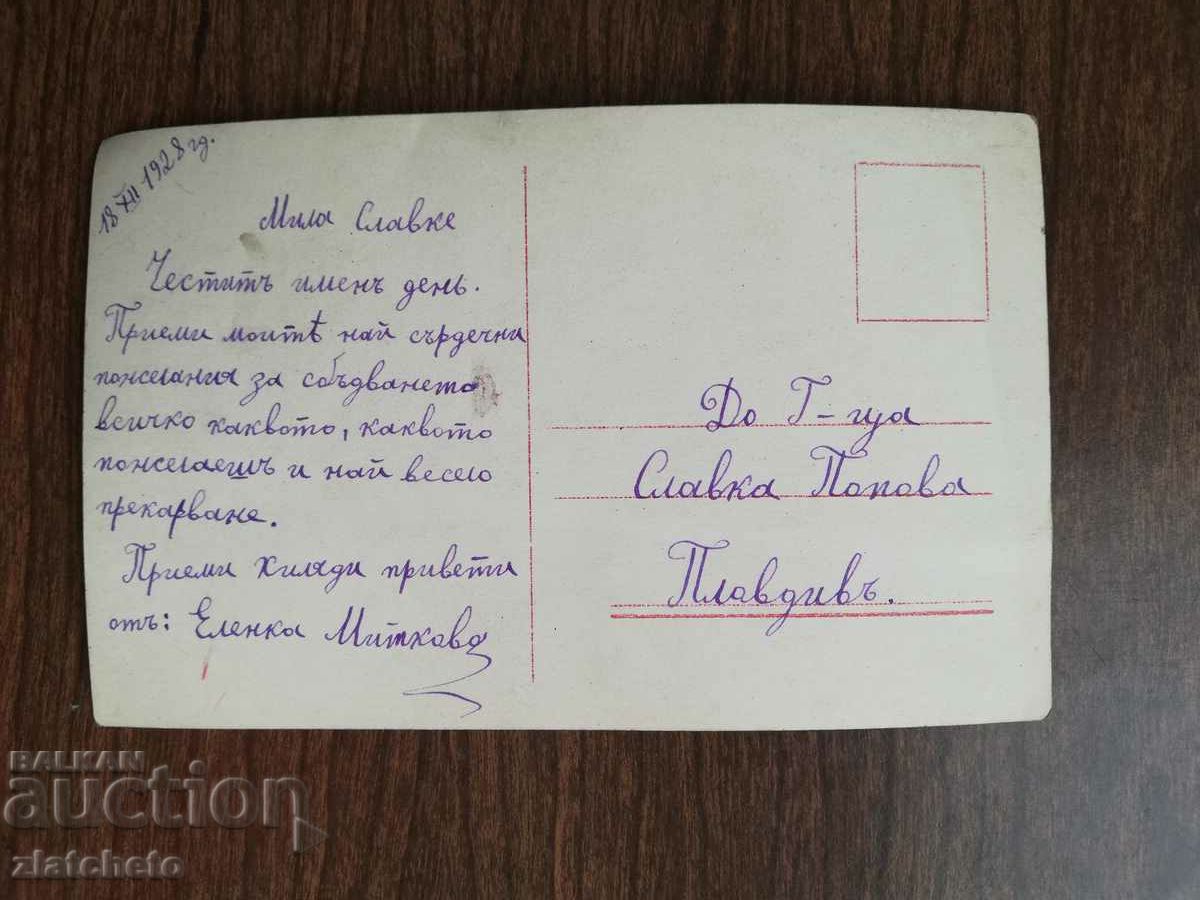 18 XII 1928 гд.
Мила Славке
Честитъ именъ день.
Приеми моитѣ най сърдечни
пожелания за сбъдването
всичко каквото, каквото
пожелаешъ и най весело
прекарване.
Приеми хиляди привети
отъ: Еленка Миткова
До Г-ца
Славка Попова
Пловдивъ.
BALKAN
auction
zlatcheto